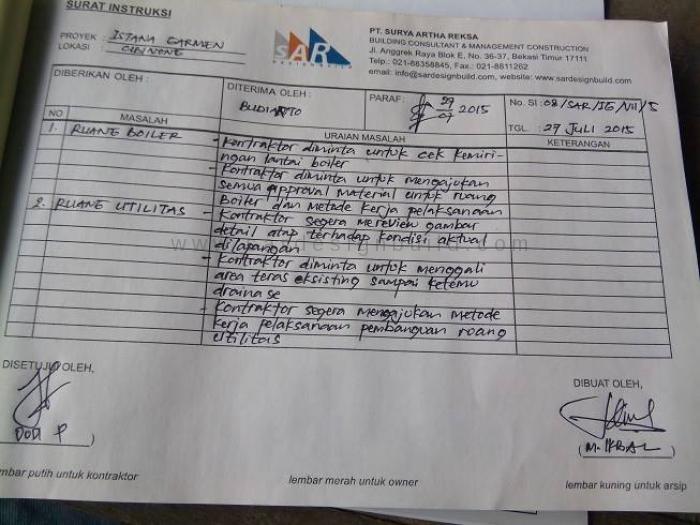 SURAT INSTRUKSI
PROYEK : ISTANA GARMEN
LOKASI :
SAR
DESIGN BUILD
PT. SURYA ARTHA REKSA
BUILDING CONSULTANT & MANAGEMENT CONSTRUCTION
Jl. Anggrek Raya Blok E, No. 36-37, Bekasi Timur 17111
Telp.: 021-88358845, Fax.: 021-8811262
email: info@sardesignbuild.com, website: www.sardesignbuild.com
DIBERIKAN OLEH :
DITERIMA OLEH :
BUDIANTO
PARAF :
29/07 2015
No. SI : 08/SAR/IG/VII/15
TGL. : 29 JULI 2015
NO MASALAH URAIAN MASALAH KETERANGAN
1. RUANG BOILER - Kontraktor diminta untuk cek kemiri-
ngan lantai boiler
- Kontraktor diminta untuk mengajukan
semua approval material untuk ruang
Boiler dan metode kerja pelaksanaan
2. RUANG UTILITAS - Kontraktor segera mereview gambar
detail atap terhadap kondisi aktual
dilapangan
- Kontraktor diminta untuk menggali
area teras eksisting sampai ketemu
drainase
- Kontraktor segera mengajukan metode
kerja pelaksanaan pembanguan ruang
utilitas
DISETUJUI OLEH,
DODI P
DIBUAT OLEH,
(M. IKBAL)
mbar putih untuk kontraktor
lembar merah untuk owner
lembar kuning untuk arsip